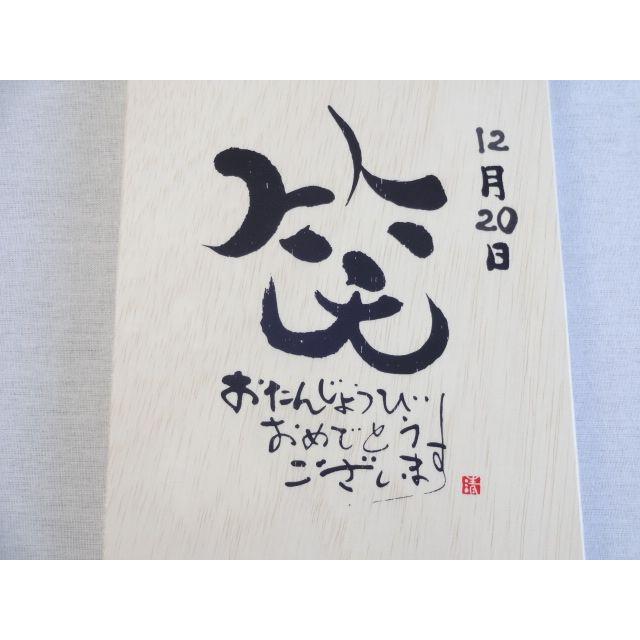 12月20日
笑
おたんじょうび
おめでとう
ございます